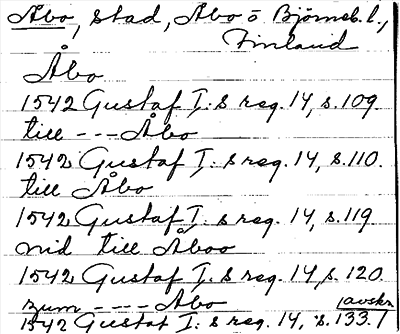 Åbo, stad, Åbo o Björneb. l.,
Finland
Åbo
1542 Gustaf I:s reg. 14, s.109
till --- Åbo
1542 Gustaf I:s reg. 14, s.110.
till Åbo
1542 Gustaf I:s reg. 14, s.119
vid till Åboo
1542 Gustaf I:s reg. 14, s.120
zum ---- Åbo (avskr.
1542 Gustaf I:s reg. 14, s.133.)